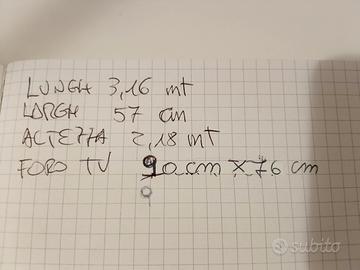 LUNGH 3,16 mt
LARGH 57 cm
ALTEZZA 2,18 mt
FORO TV 90 cm X 76 cm
9
subito